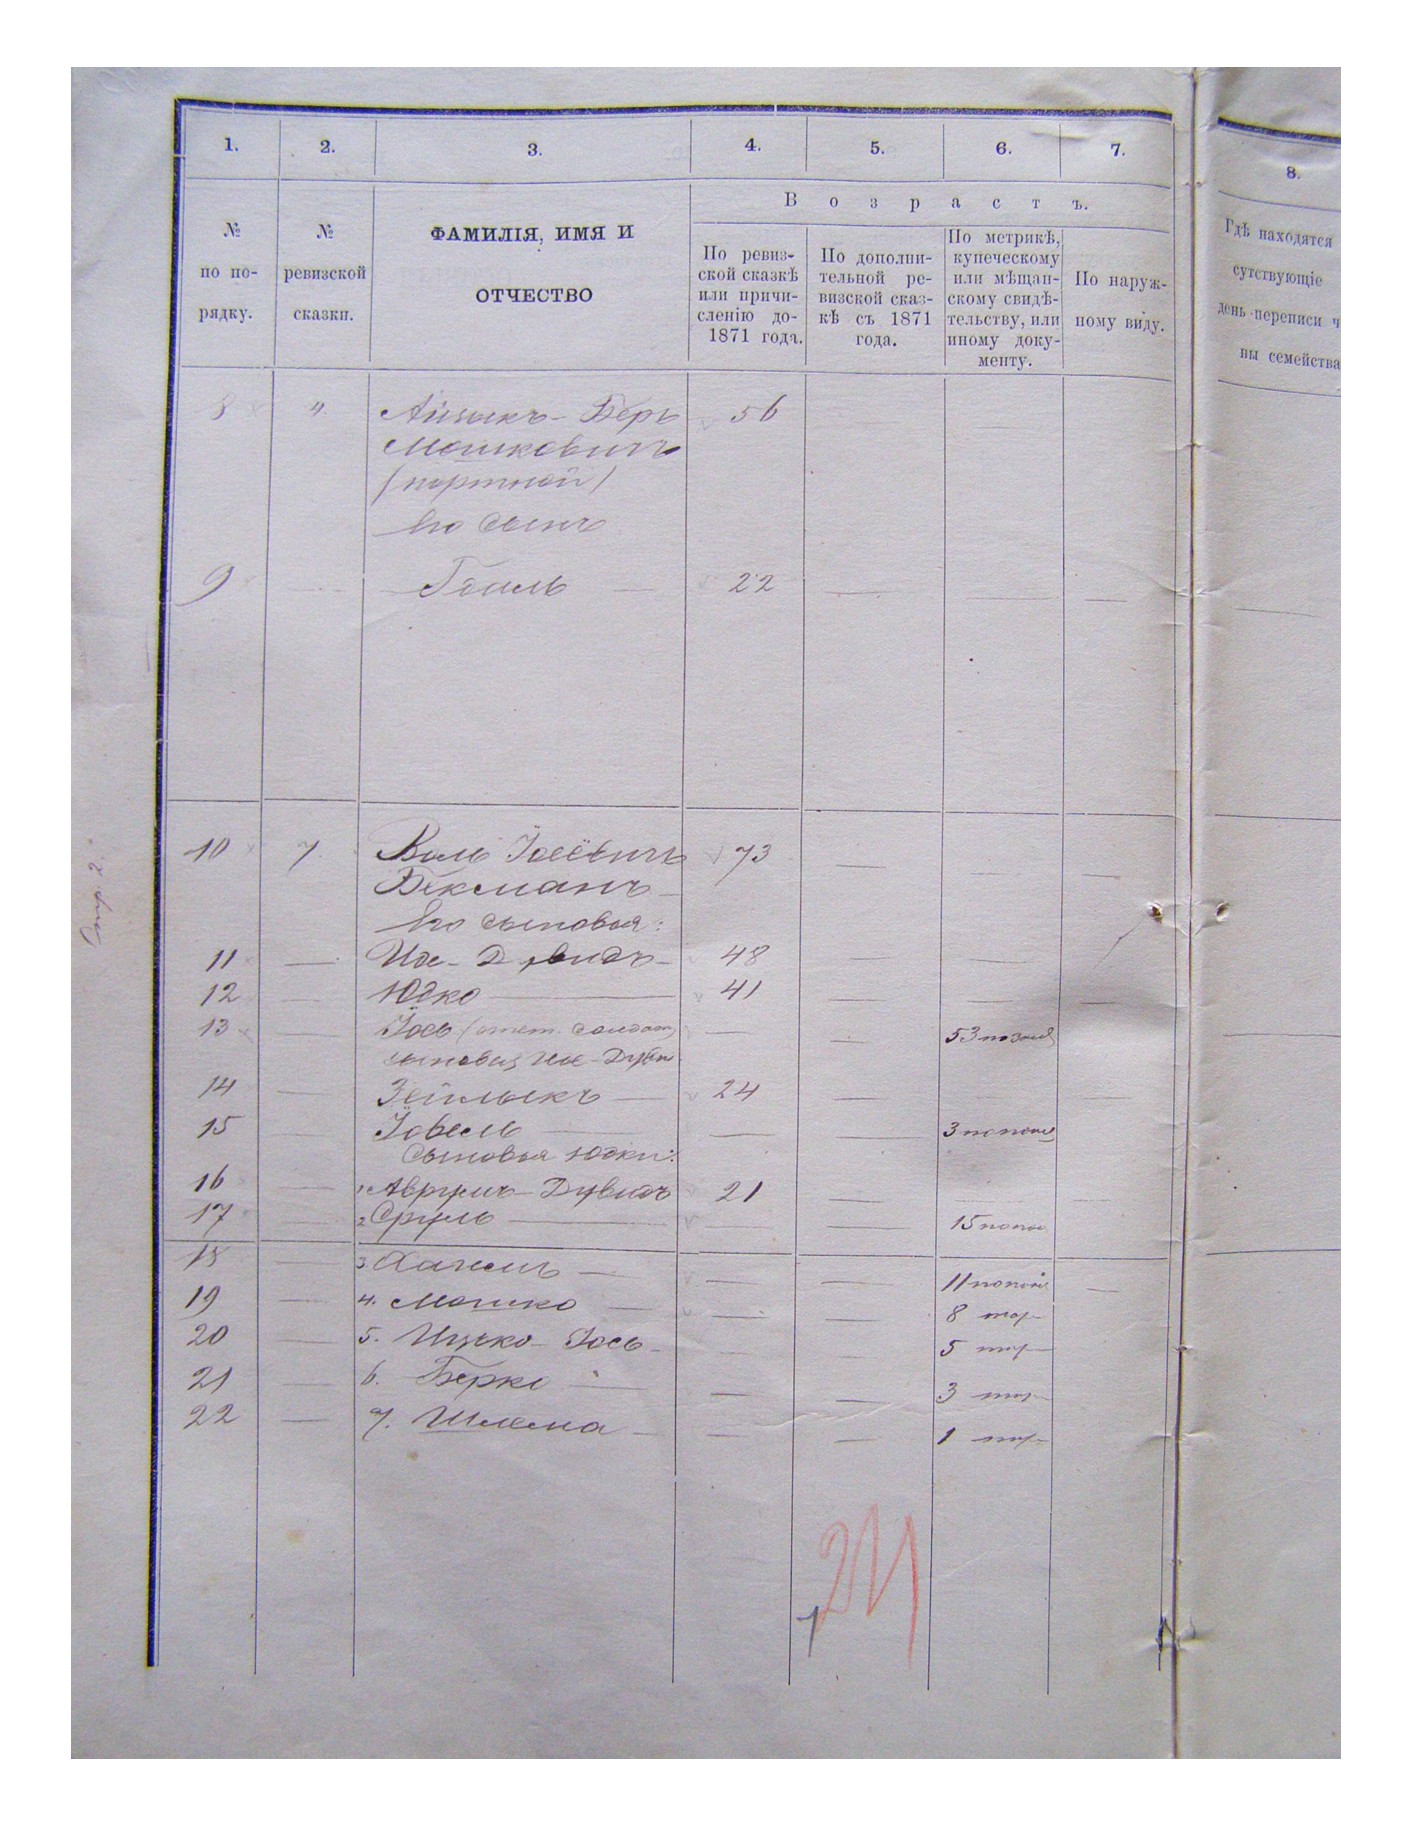 1. 2. 3. 4. 5. 6. 7. 8.
№ по по-рядку.
№ ревизской сказки.
ФАМИЛІЯ, ИМЯ И
ОТЧЕСТВО
Возрастъ.
По ревиз-
ской сказкѣ
или причи-
сленію до-
1871 года.
По дополни-
тельной ре-
визской сказ-
кѣ съ 1871
года.
По метрикѣ,
купеческому
или мѣщан-
скому свидѣ-
тельству, или
иному доку-
менту.
По наруж-
ному виду.
Гдѣ находятся
сутствующіе
день переписи ч
ны семейства
8 4 Айзыкъ-Беръ 56
Мошковичъ
(портной)
Его сынъ
9 — — 22 — — —
10 7 Іосёвичъ 73 — — —
Бекманъ
Его сыновья:
11 — Дувидъ — 48 — —
12 — Юдко — 41 — — —
13 — Іось — —
сыновья
14 — Зейлыкъ — 24 — —
15 — Іовель — — — 3 пополн
Сыновья Юдки:
16 — 1. Аврумъ-Дувидъ 21 — — —
17 — 2 Сруль — — — 15 попол
18 — 3. — — — 11 пополн —
19 — 4. Мошко — — — 8
20 — 5. Ицко-Іось — — — 5
21 — 6. Берко — — — 3
22 — 7. Шлема — — — 1
Стр. 2.